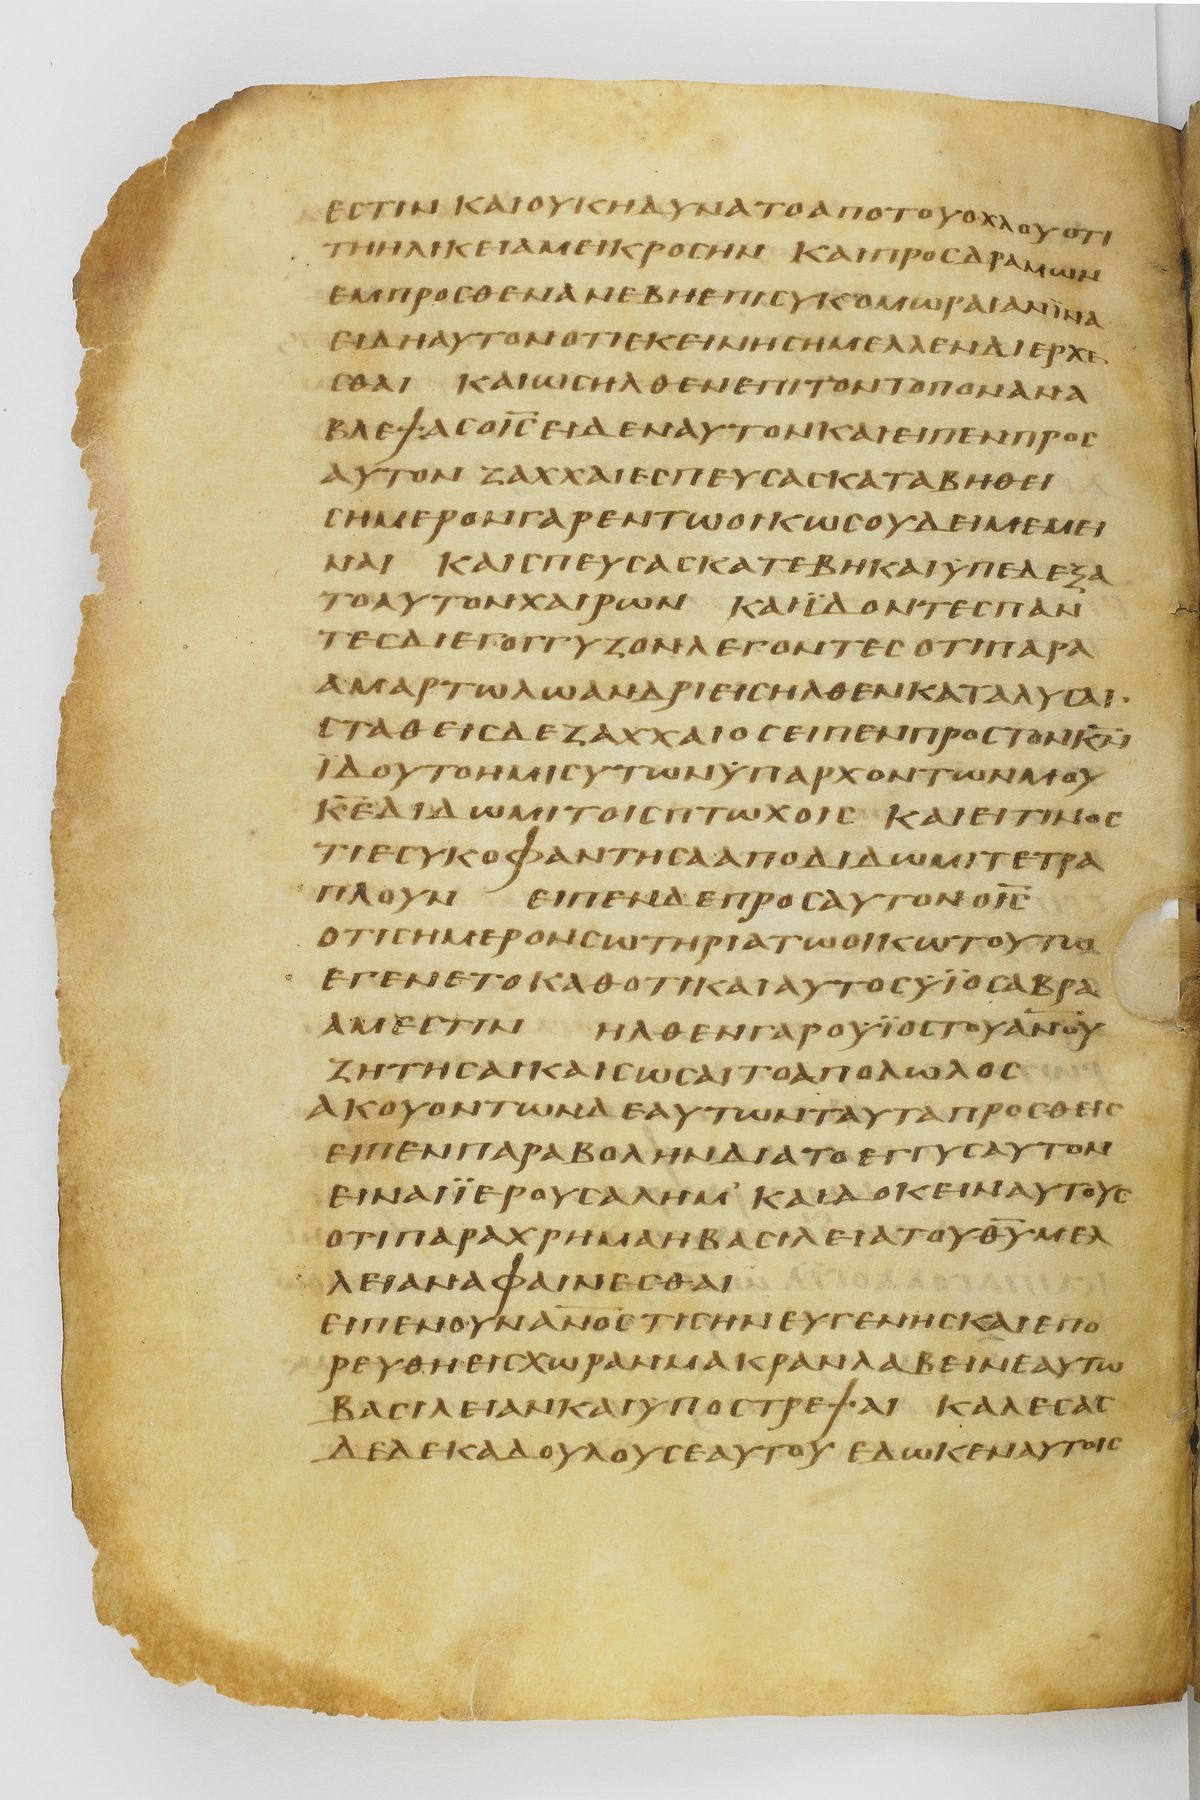 ΕCΤΙΝ ΚΑΙΟΥΚΗΔΥΝΑΤΟΑΠΟΤΟΥΟΧΛΟΥΟΤΙ
ΤΗΗΛΙΚΕΙΑΜΕΙΚΡΟCΗΝ ΚΑΙΠΡΟCΔΡΑΜΩΝ
ΕΜΠΡΟCΘΕΝΑΝΕΒΗΕΠΙCΥΚΟΜΩΡΑΙΑΝΪΝΑ
ΕΙΔΗΑΥΤΟΝΟΤΙΕΚΕΙΝΗCΗΜΕΛΛΕΝΔΙΕΡΧΕ
CΘΑΙ ΚΑΙΩCΗΛΘΕΝΕΠΙΤΟΝΤΟΠΟΝΑΝΑ
ΒΛΕΨΑCΟΙ̅C̅ΕΙΔΕΝΑΥΤΟΝΚΑΙΕΙΠΕΝΠΡΟC
ΑΥΤΟΝ ΖΑΧΧΑΙΕCΠΕΥCΑCΚΑΤΑΒΗΘΕΙ
CΗΜΕΡΟΝΓΑΡΕΝΤΩΟΙΚΩCΟΥΔΕΙΜΕΜΕΙ
ΝΑΙ ΚΑΙCΠΕΥCΑCΚΑΤΕΒΗΚΑΙΫΠΕΔΕΞΑ
ΤΟΑΥΤΟΝΧΑΙΡΩΝ ΚΑΙΪΔΟΝΤΕCΠΑΝ
ΤΕCΔΙΕΓΟΓΓΥΖΟΝΛΕΓΟΝΤΕC ΟΤΙΠΑΡΑ
ΑΜΑΡΤΩΛΩΑΝΔΡΙΕΙCΗΛΘΕΝΚΑΤΑΛΥCΑΙ·
CΤΑΘΕΙCΔΕΖΑΧΧΑΙΟCΕΙΠΕΝΠΡΟCΤΟΝΚ̅Ν̅
ΪΔΟΥΤΟΗΜΙCΥΤΩΝΫΠΑΡΧΟΝΤΩΝΜΟΥ
Κ̅Ε̅ΔΙΔΩΜΙΤΟΙCΠΤΩΧΟΙC ΚΑΙΕΙΤΙΝΟC
ΤΙΕCΥΚΟΦΑΝΤΗCΑΑΠΟΔΙΔΩΜΙΤΕΤΡΑ
ΠΛΟΥΝ ΕΙΠΕΝΔΕΠΡΟCΑΥΤΟΝΟΙ̅C̅
ΟΤΙCΗΜΕΡΟΝCΩΤΗΡΙΑΤΩΟΙΚΩΤΟΥΤΩ
ΕΓΕΝΕΤΟΚΑΘΟΤΙΚΑΙΑΥΤΟCΫΪΟCΑΒΡΑ
ΑΜΕCΤΙΝ ΗΛΘΕΝΓΑΡΟΥΪΟCΤΟΥΑ̅Ν̅Ο̅Υ̅
ΖΗΤΗCΑΙΚΑΙCΩCΑΙΤΟΑΠΟΛΩΛΟC
ΑΚΟΥΟΝΤΩΝΔΕΑΥΤΩΝΤΑΥΤΑΠΡΟCΘΕΙC
ΕΙΠΕΝΠΑΡΑΒΟΛΗΝΔΙΑΤΟΕΓΓΥCΑΥΤΟΝ
ΕΙΝΑΙΪΕΡΟΥCΑΛΗΜ’ ΚΑΙΔΟΚΕΙΝΑΥΤΟΥC
ΟΤΙΠΑΡΑΧΡΗΜΑΗΒΑCΙΛΕΙΑΤΟΥΘ̅Υ̅ΜΕΛ
ΛΕΙΑΝΑΦΑΙΝΕCΘΑΙ
ΕΙΠΕΝΟΥΝΑ̅Ν̅Ο̅C̅ΤΙCΗΝΕΥΓΕΝΗCΚΑΙΕΠΟ
ΡΕΥΘΗΕΙCΧΩΡΑΝΜΑΚΡΑΝΛΑΒΕΙΝΕΑΥΤΩ
ΒΑCΙΛΕΙΑΝΚΑΙΥΠΟCΤΡΕΨΑΙ ΚΑΛΕCΑC
ΔΕΔΕΚΑΔΟΥΛΟΥCΕΑΥΤΟΥ ΕΔΩΚΕΝΑΥΤΟΙC